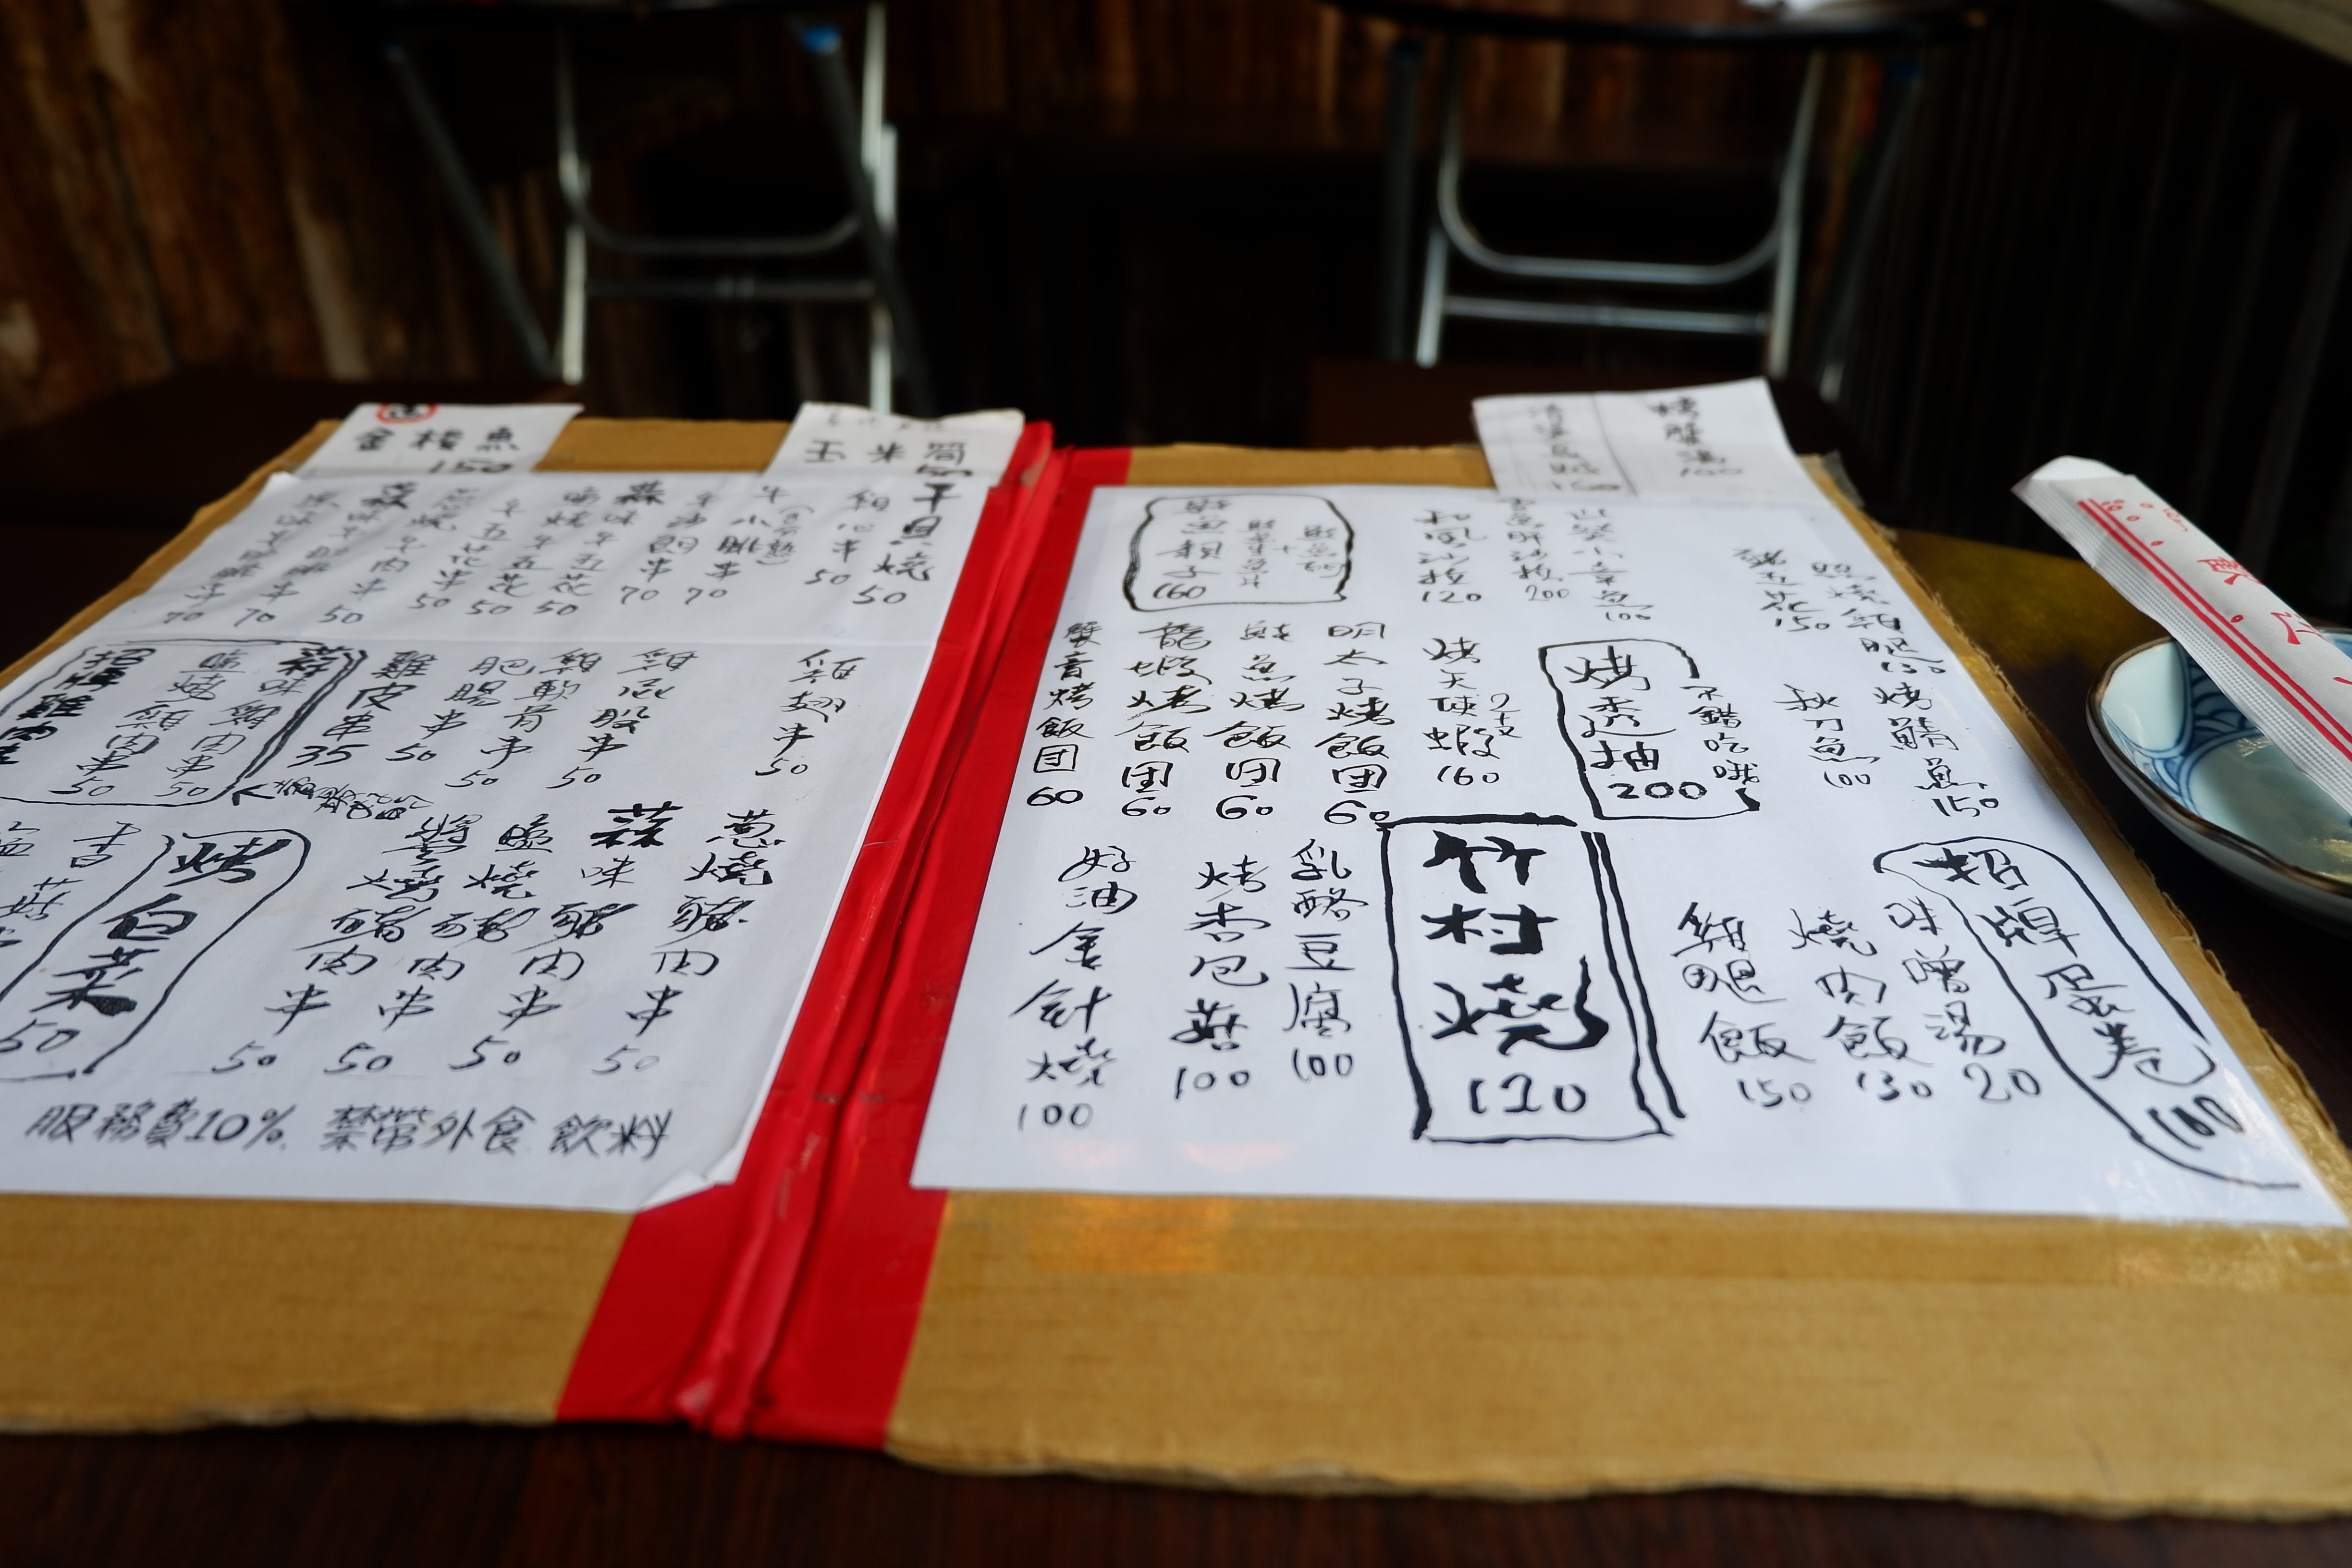 金梭魚
150
玉米筍
50
烤蟹湯
100
干貝燒 50
甜心串 50
牛小排串 70
牛沙朗串 70
蒜味牛五花 50
鹽燒牛五花 50
牛五花串 50
蒜味牛肉串 50
雞翅串 50
雞屁股串 50
雞軟骨串 50
肥腸串 50
雞皮串 35
蒜味雞肉串 50
鹽燒雞肉串 50
招牌雞肉串
蔥燒豬肉串 50
蒜味豬肉串 50
鹽燒豬肉串 50
醬燒豬肉串 50
烤白菜 50
服務費10% 禁帶外食 飲料
照燒雞腿 150
豬五花 150
山葵小章魚 100
和風沙拉 120
鮭魚親子 160
烤鯖魚 150
秋刀魚 100
不錯吃哦
烤透抽 200
烤天使蝦 2支 160
明太子烤飯团 60
鮭魚烤飯团 60
龍蝦烤飯团 60
蟹膏烤飯团 60
招牌蛋卷 100
味噌湯 20
燒肉飯 130
雞腿飯 150
竹村燒 120
乳酪豆腐 100
烤杏包菇 100
奶油金針燒 100